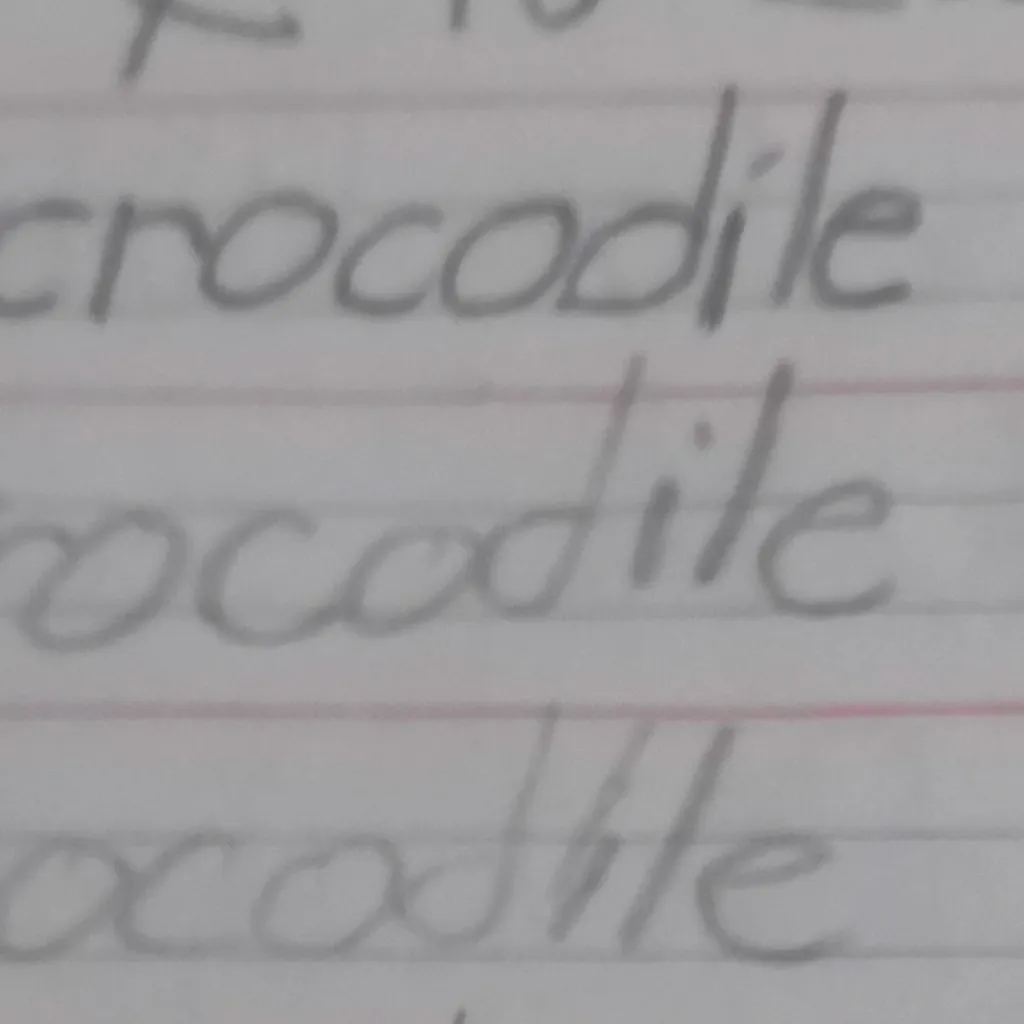 crocodile
rocodile
ocodile